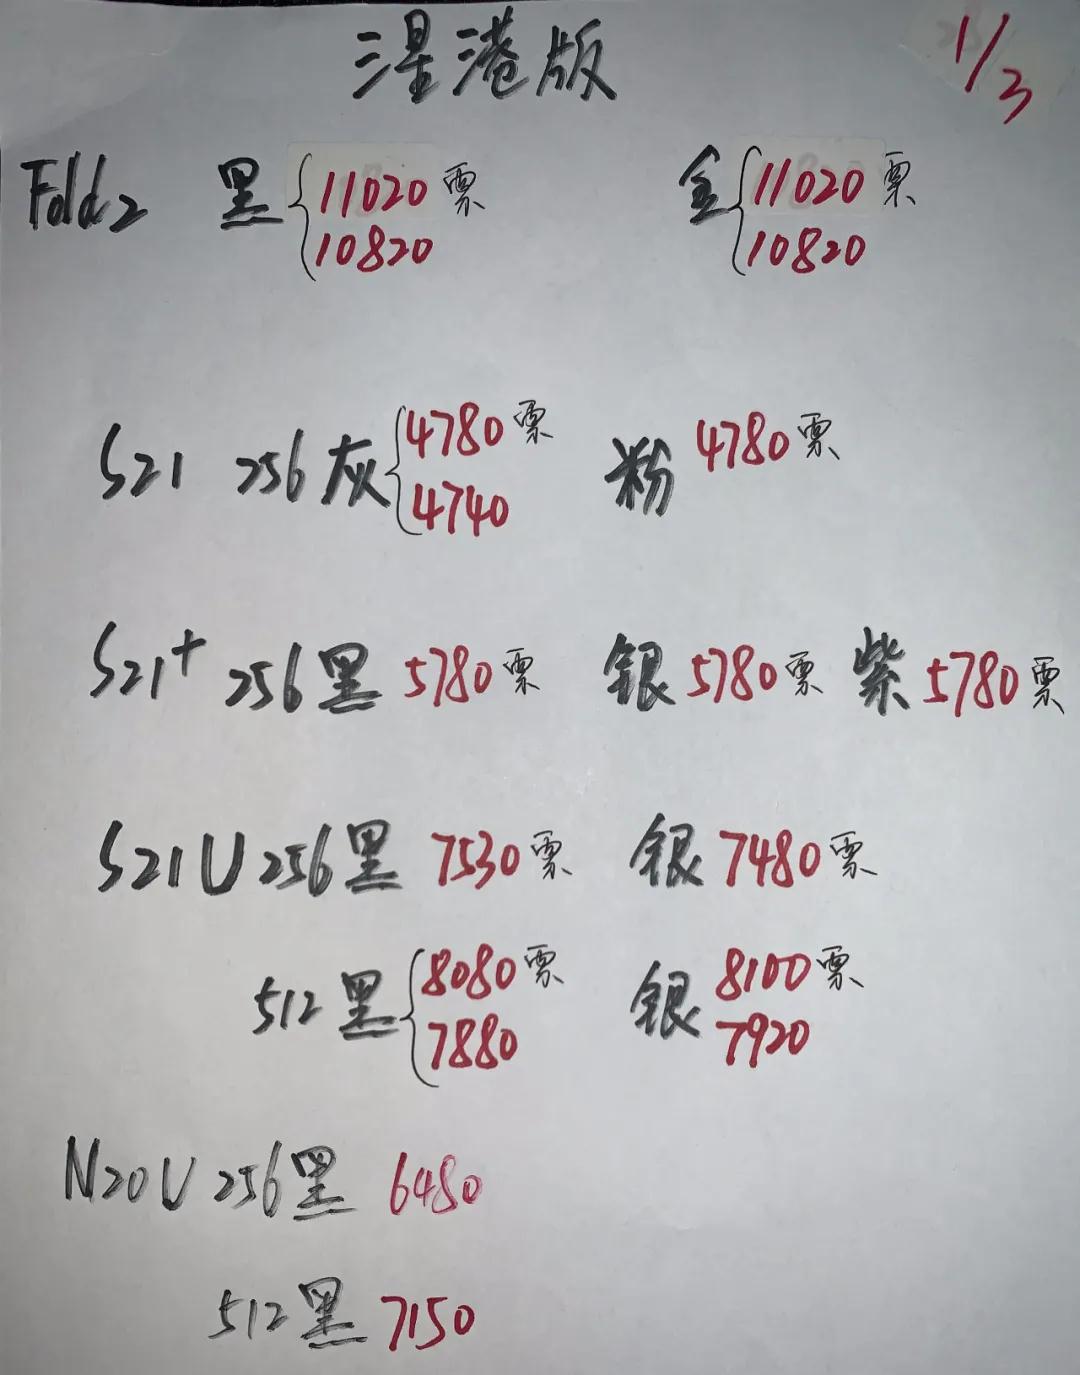 三星港版 1/3
Fold2 黑 11020票 金 11020票
10820 10820
S21 256灰 4780票 粉 4780票
4740
S21+ 256黑 5780票 银 5780票 紫 5780票
S21U 256黑 7530票 银 7480票
512黑 8080票 银 8100票
7880 7920
N20U 256黑 6480
512黑 7150